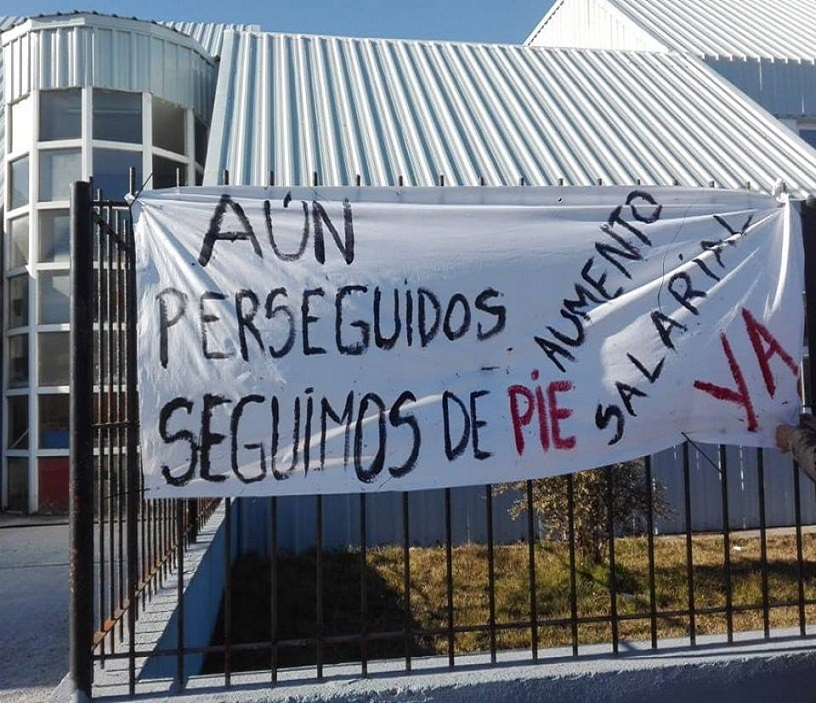 AÚN
PERSEGUIDOS
SEGUIMOS DE PIE
AUMENTO
SALARIAL
YA